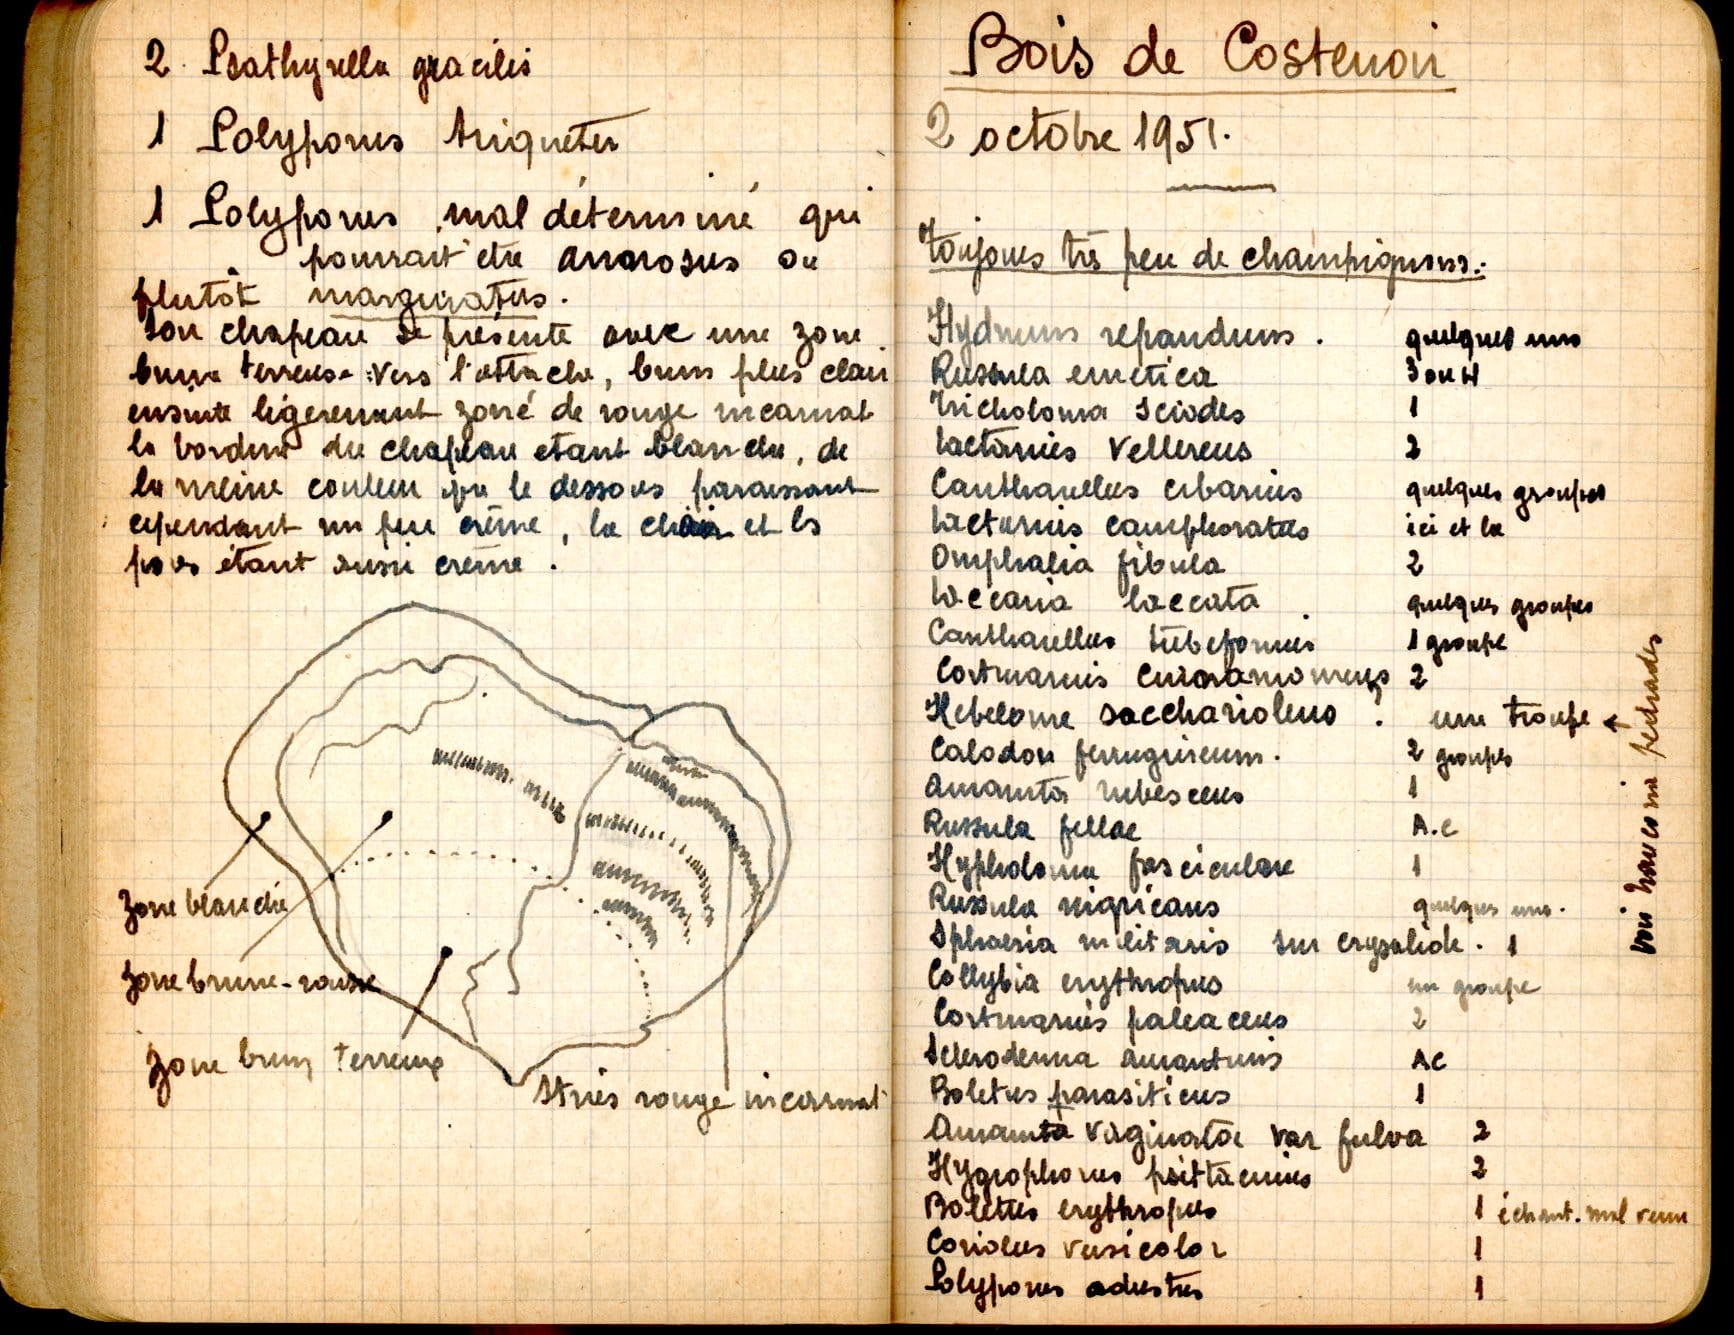 2 Psathyrella gracilis
1 Polyporus triqueter
1 Polyporus mal déterminé qui
pourrait être annosus ou
plutôt marginatus.
Son chapeau se présente avec une zone
brune terreuse vers l'attache, brun plus clair
ensuite légerement zoné de rouge incarnat
la bordure du chapeau etant blanche, de
la même couleur que le dessous paraissant
cependant un peu crême, la chair et les
pores étant aussi crême.
Zone blanche
Zone brune-rousse
Zone brun terreux
Stries rouge incarnat
Bois de Costenoir
2 octobre 1951.
Toujours très peu de champignons:
Hydnum repandum. quelques uns
Russula emetica 3 ou 4
Tricholoma sciodes 1
Lactarius vellereus 2
Cantharellus cibarius quelques groupes
Lactarius camphoratus ici et là
Omphalia fibula 2
Laccaria laccata quelques groupes
Cantharellus tubeformis 1 groupe
Cortinarius cinnamomeus 2
Hebeloma sacchariolens ? une troupe ←
Calodon ferrugineum. 2 groupes
Amanita rubescens 1
Russula fellae A.C
Hypholoma fasciculare 1
Russula nigricans quelques uns.
Sphaeria militaris sur crysalide. 1
Collybia erythropus un groupe
Cortinarius paleaceus 2
Scleroderma aurantium AC
Boletus parasiticus 1
Amanita vaginata var fulva 2
Hygrophorus psittacinus 2
Boletus erythropus 1 échant. mal venu
Coriolus versicolor 1
Polyporus adustus 1
voir